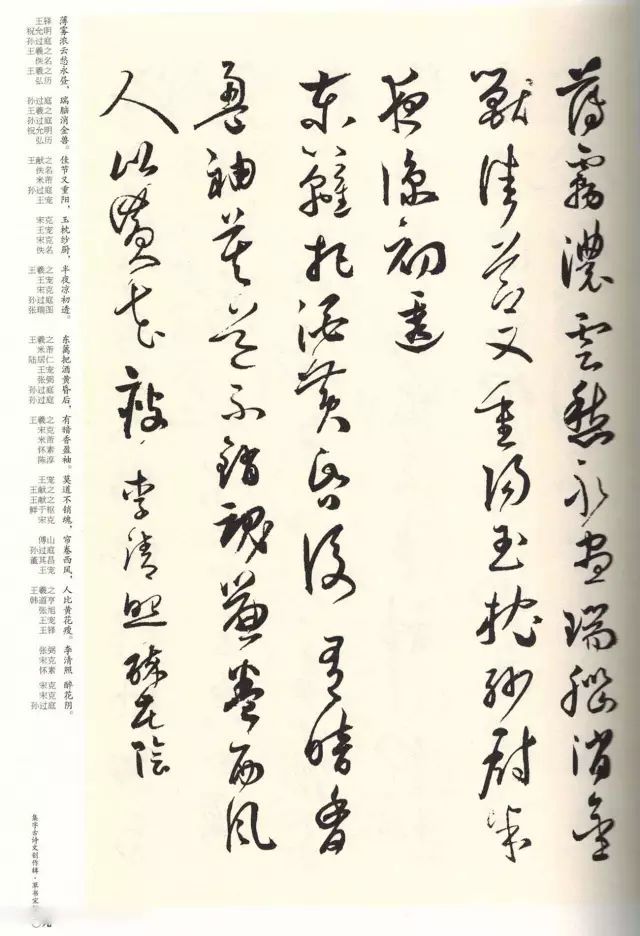 薄霧濃雲愁永晝瑞腦消金
獸佳節又重陽玉枕紗廚半
夜涼初透
東籬把酒黃昏後有暗香
盈袖莫道不銷魂簾卷西風
人比黃花瘦李清照醉花陰
薄雾浓云愁永昼，瑞脑消金兽。佳节又重阳，玉枕纱厨，半夜凉初透。东篱把酒黄昏后，有暗香盈袖。莫道不销魂，帘卷西风，人比黄花瘦。李清照 醉花阴。
王铎 祝允明 孙过庭 王羲之 佚名 王羲之 弘历 孙过庭 王羲之 孙过庭 祝允明 弘历 王献之 佚名 米芾 孙过庭 王宠 宋克 王宠 宋克 佚名 王羲之 王宠 宋克 孙过庭 张瑞图 王羲之 米芾 陆居仁 王宠 张弼 孙过庭 孙过庭 王羲之 宋克 米芾 怀素 陈淳 王宠 王献之 王献之 鲜于枢 宋克 傅山 孙过庭 董其昌 王宠 王羲之 韩道亨 张旭 王宠 王铎 张弼 宋克 怀素 宋克 宋克 孙过庭
集字古诗文创作辑·草书宋